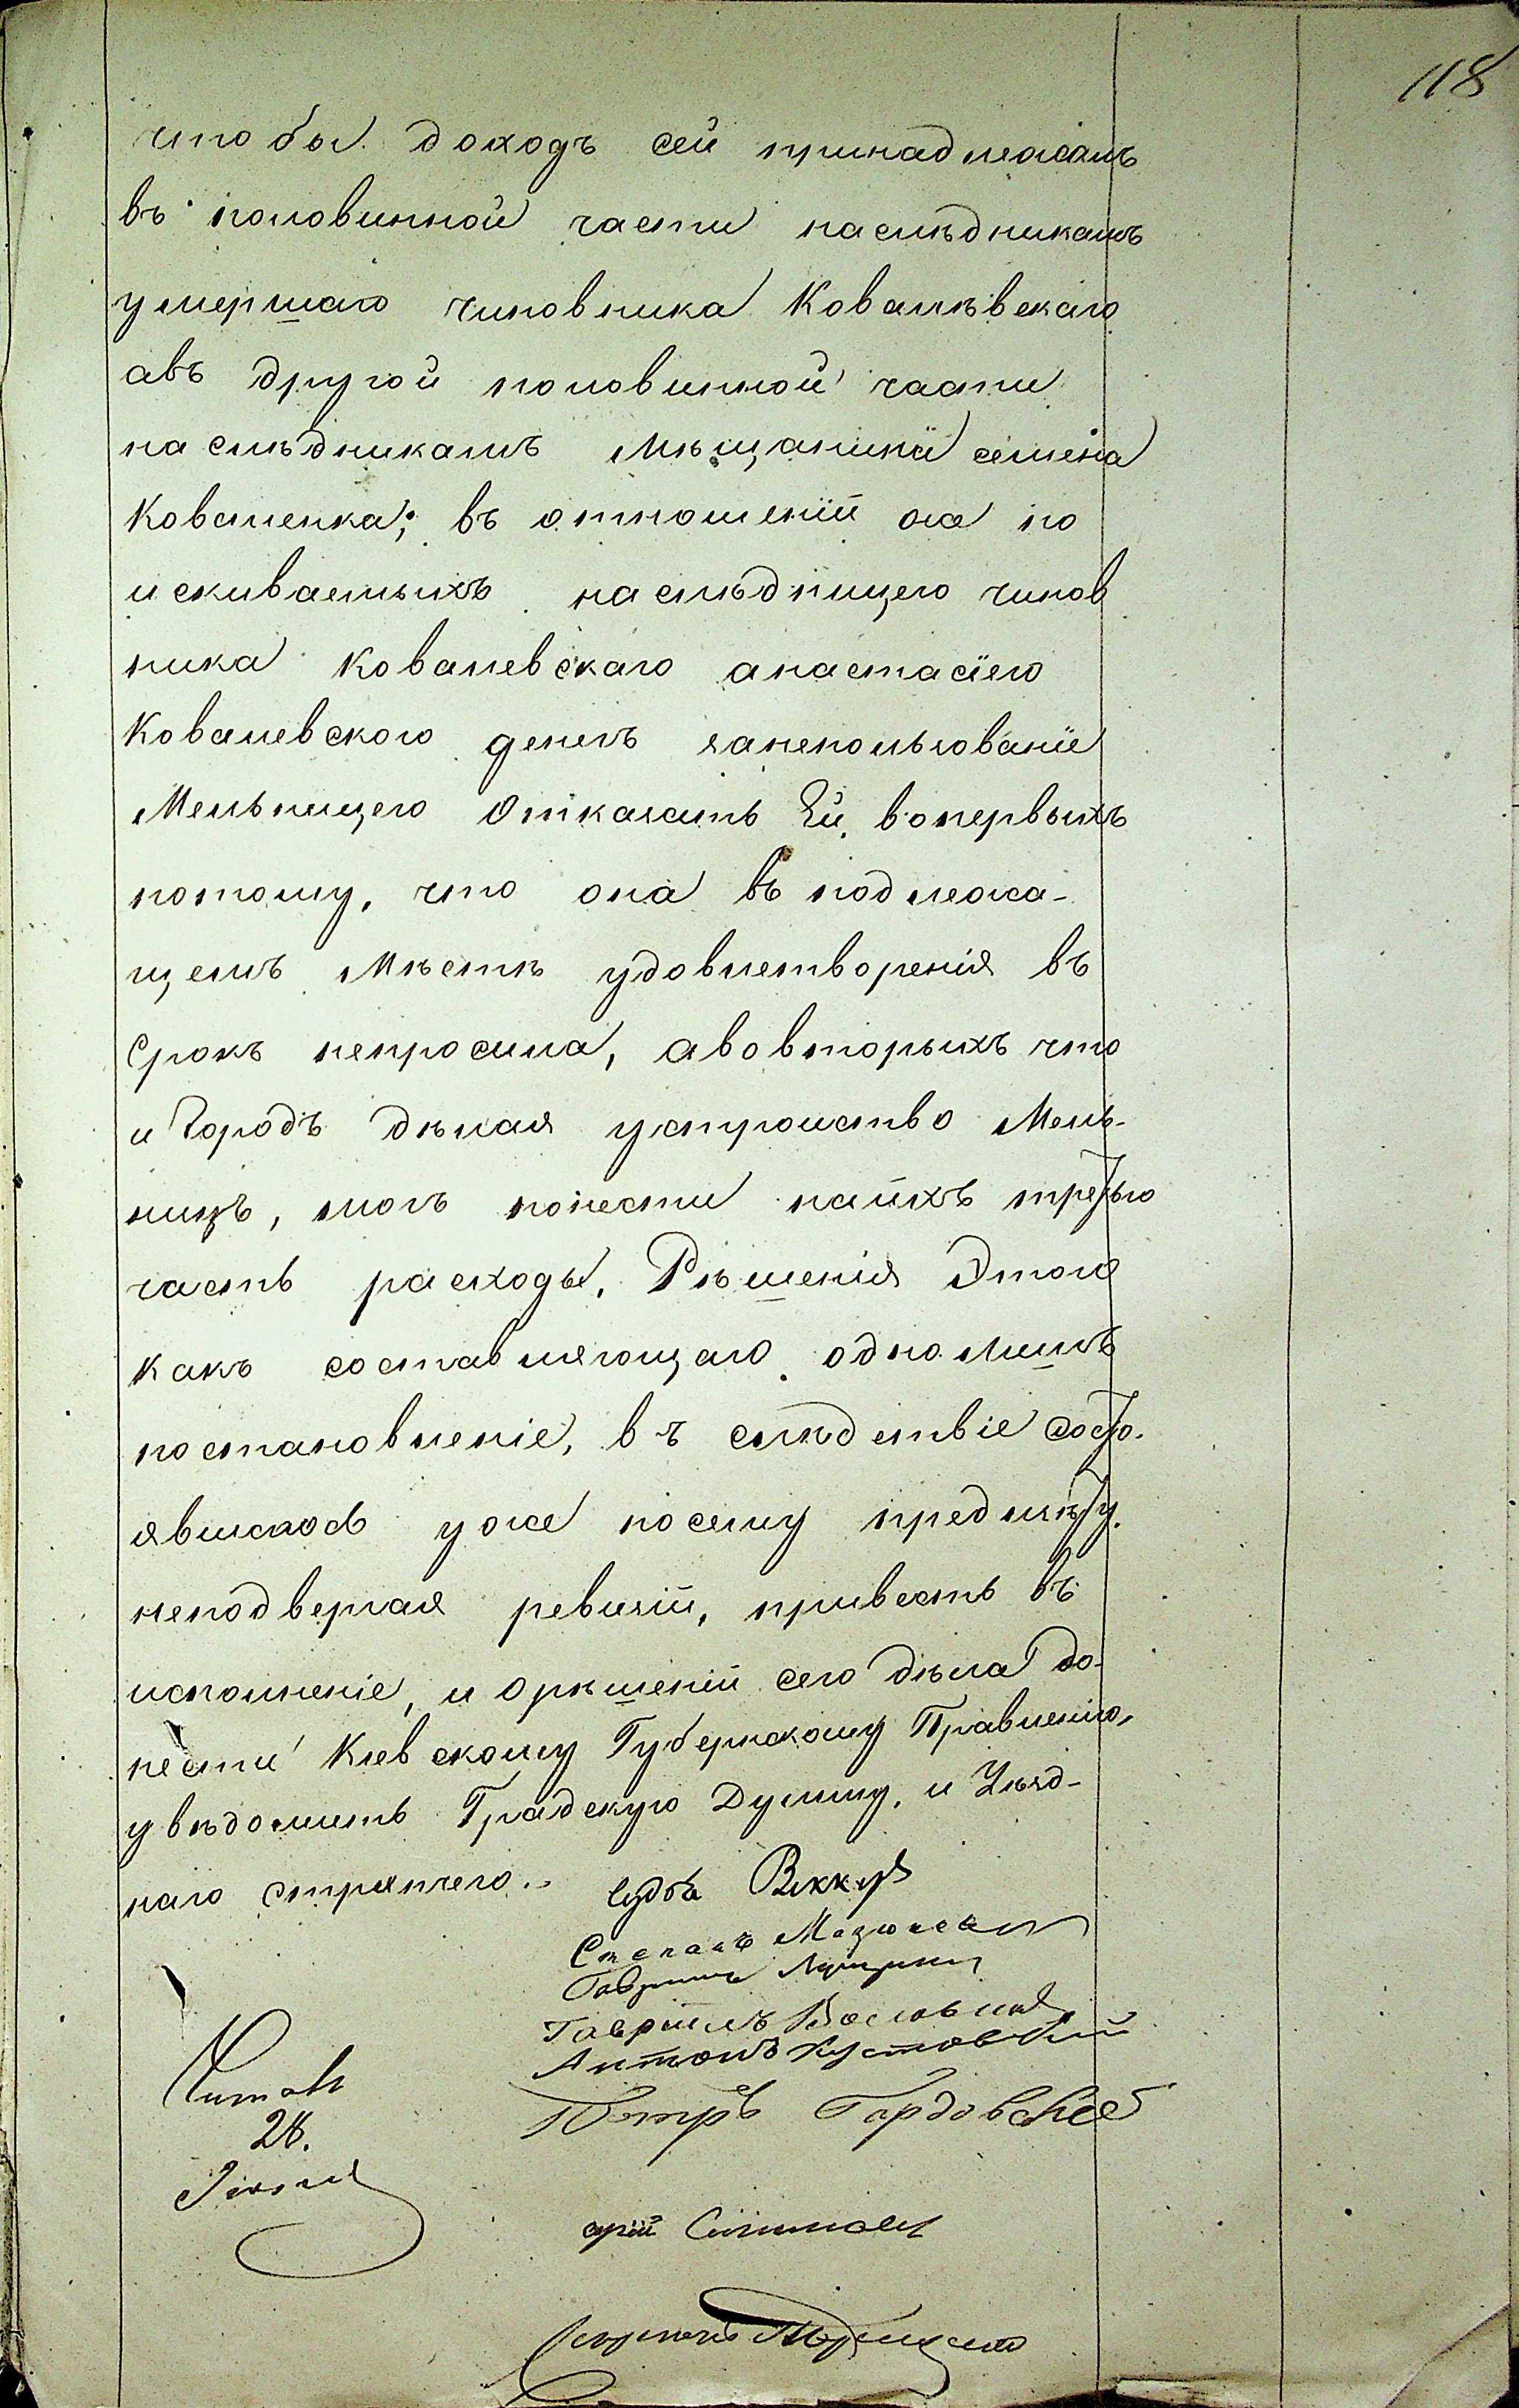 118
что бы доходъ сей принадлежалъ
въ половинной части наслѣдникамъ
умершаго чиновника Ковалѣвскаго
авъ другой половинной части
наслѣдникамъ Мѣщанина семена
Коваленка; въ отношеніи же по
искиваемыхъ наслѣдницею чинов
ника Ковалевскаго анастасіею
Ковалевскою денегъ занепользованіе
Мельницею Отказать Ей, вопервыхъ
потому, что она въ подлежа-
щемъ Мѣстѣ удовлетворенія въ
Срокъ непросила, авовторыхъ что
и Городъ дѣлая устроиство Мель-
ницъ, могъ понести наихъ третью
часть расходы, Рѣшенія Этого
какъ составляющаго одно лишь
постановленіе, въ слѣдствіе состо-
явшихся уже посему предмѣту,
неподвергая ревизіи, привесть въ
исполненіе, и Орѣшеніи сего дѣла до-
нести Кіевскому Губернскому Правленію,
увѣдомить Градскую Думу, и Уѣзд-
наго стряпчего.. Судья
Степанъ
Гаврилъ
Антонъ Хустовскій
Петръ Гордовскій
Читалъ
28.